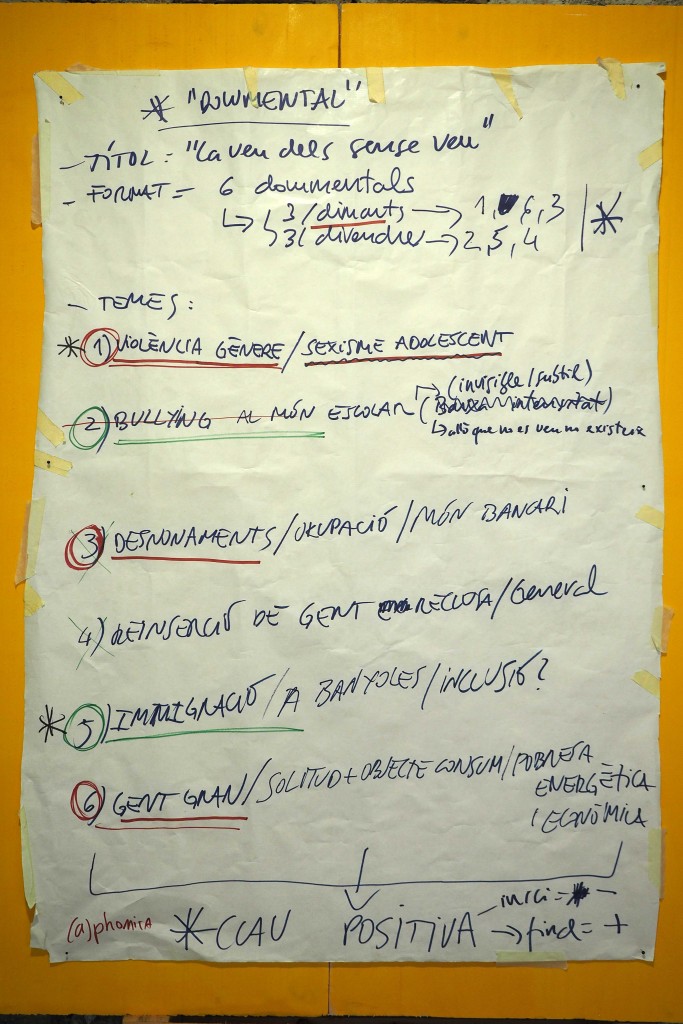 * "DOCUMENTAL"
- TÍTOL = "La veu dels sense veu"
- FORMAT = 6 documentals
↳ 3/dimarts → 1, 6, 3
3/divendres → 2, 5, 4
*
- TEMES:
* 1) VIOLÈNCIA GÈNERE/SEXISME ADOLESCENT
(invisible/subtil)
2) BULLYING AL MÓN ESCOLAR (
↳ allò que no es veu no existeix
3) DESNONAMENTS/OKUPACIÓ/MÓN BANCARI
4) REINSERCIÓ DE GENT RECLOSA/General
* 5) IMMIGRACIÓ/A BANYOLES/INCLUSIÓ?
6) GENT GRAN/SOLITUD + OBJECTE CONSUM/POBRESA
ENERGÈTICA
I ECONÒMICA
(a)phònica * CLAU POSITIVA
inici = -
→ final = +